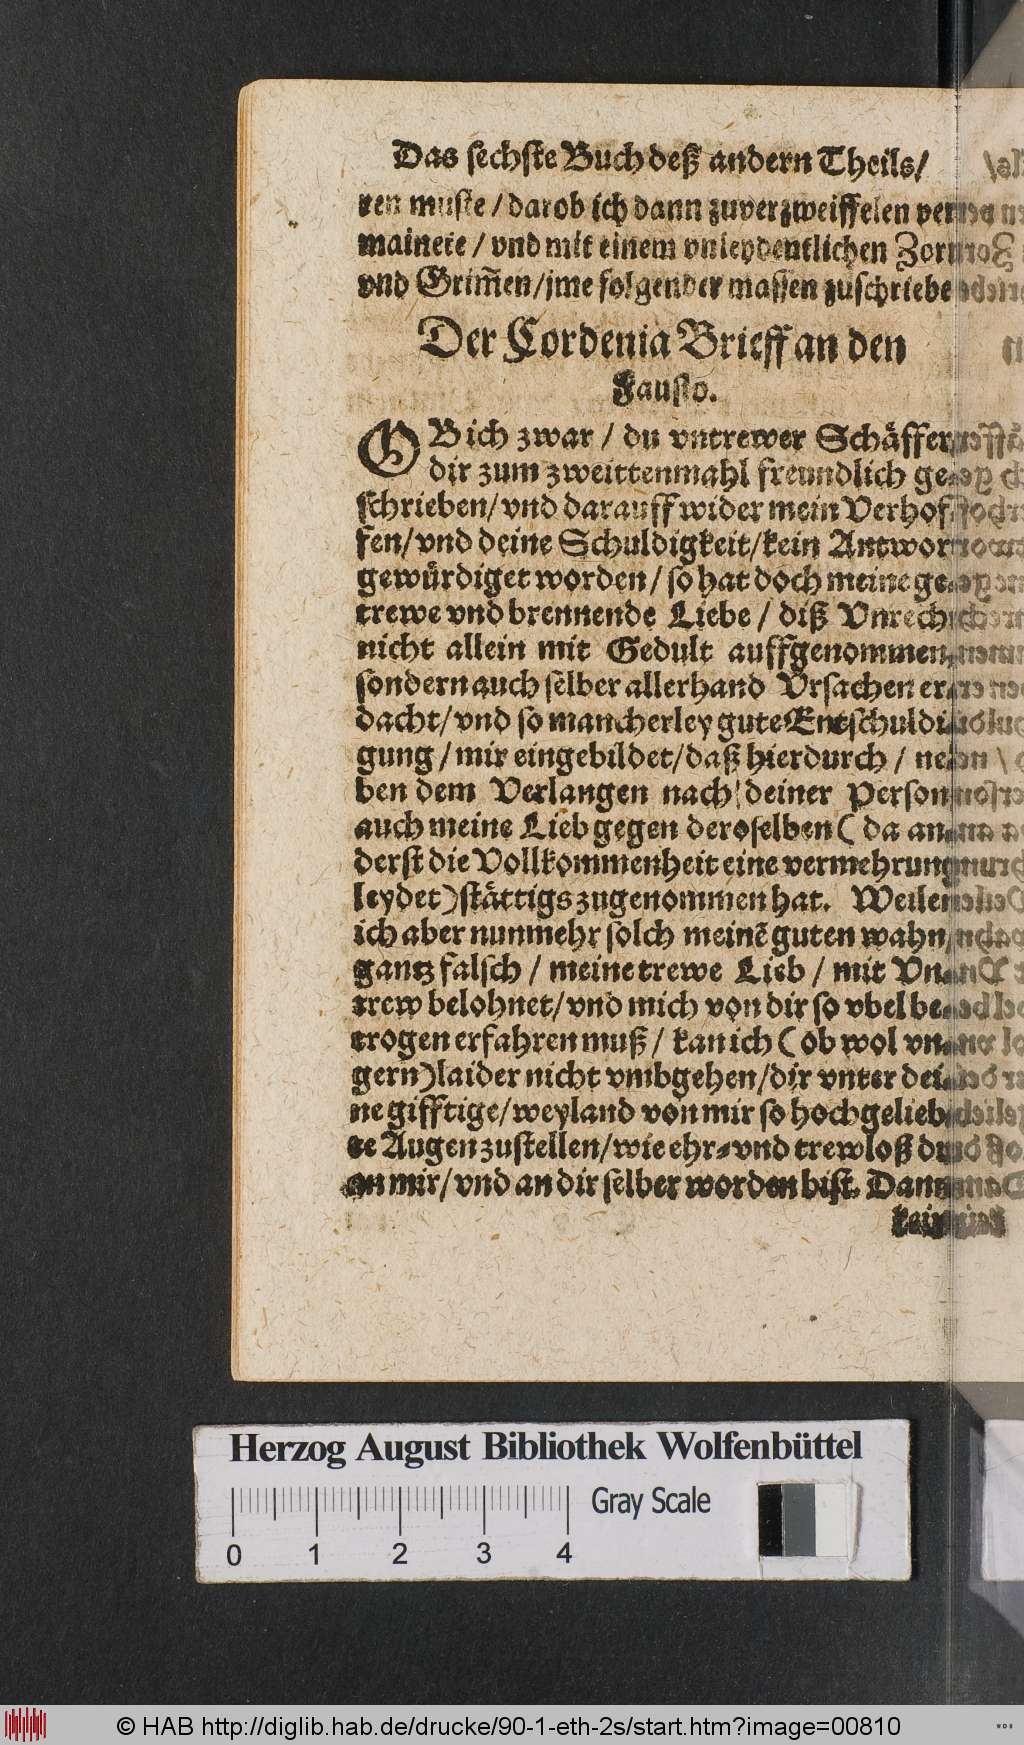 Das sechste Buch deß andern Theils/
ren muste / darob ich dann zuverzweiffelen ver⸗
mainete / vnd mit einem vnleydentlichen Zorn
vnd Grim̃en/jme folgender massen zuschriebe
Der Cordenia Brieff an den
Fausto.
OB ich zwar / du vntrewer Schäffer,
dir zum zweittenmahl freundlich ge⸗
schrieben/ vnd darauff wider mein Verhof⸗
fen/vnd deine Schuldigkeit/kein Antwort
gewürdiget worden/ so hat doch meine ge⸗
trewe vnd brennende Liebe / diß Vnrecht
nicht allein mit Gedult auffgenommen,
sondern auch selber allerhand Vrsachen er⸗
dacht/ vnd so mancherley gute Entschuldi⸗
gung / mir eingebildet/daß hierdurch / ne⸗
ben dem Verlangen nach deiner Person
auch meine Lieb gegen deroselben ( da an⸗
derst die Vollkommenheit eine vermehrung
leydet)stättigs zugenommen hat. Weilen
ich aber nunmehr solch meinẽ guten wahn
gantz falsch / meine trewe Lieb / mit Vn⸗
trew belohnet/ vnd mich von dir so vbel be⸗
trogen erfahren muß / kan ich ( ob wol vn⸗
gern)laider nicht vmbgehen/dir vnter dei⸗
ne gifftige/weyland von mir so hochgelieb⸗
te Augen zustellen/wie ehr⸗ vnd trewloß du
an mir/ vnd an dir selber worden bist. Dann
kein
Herzog August Bibliothek Wolfenbüttel
Gray Scale
0 1 2 3 4
© HAB http://diglib.hab.de/drucke/90-1-eth-2s/start.htm?image=00810